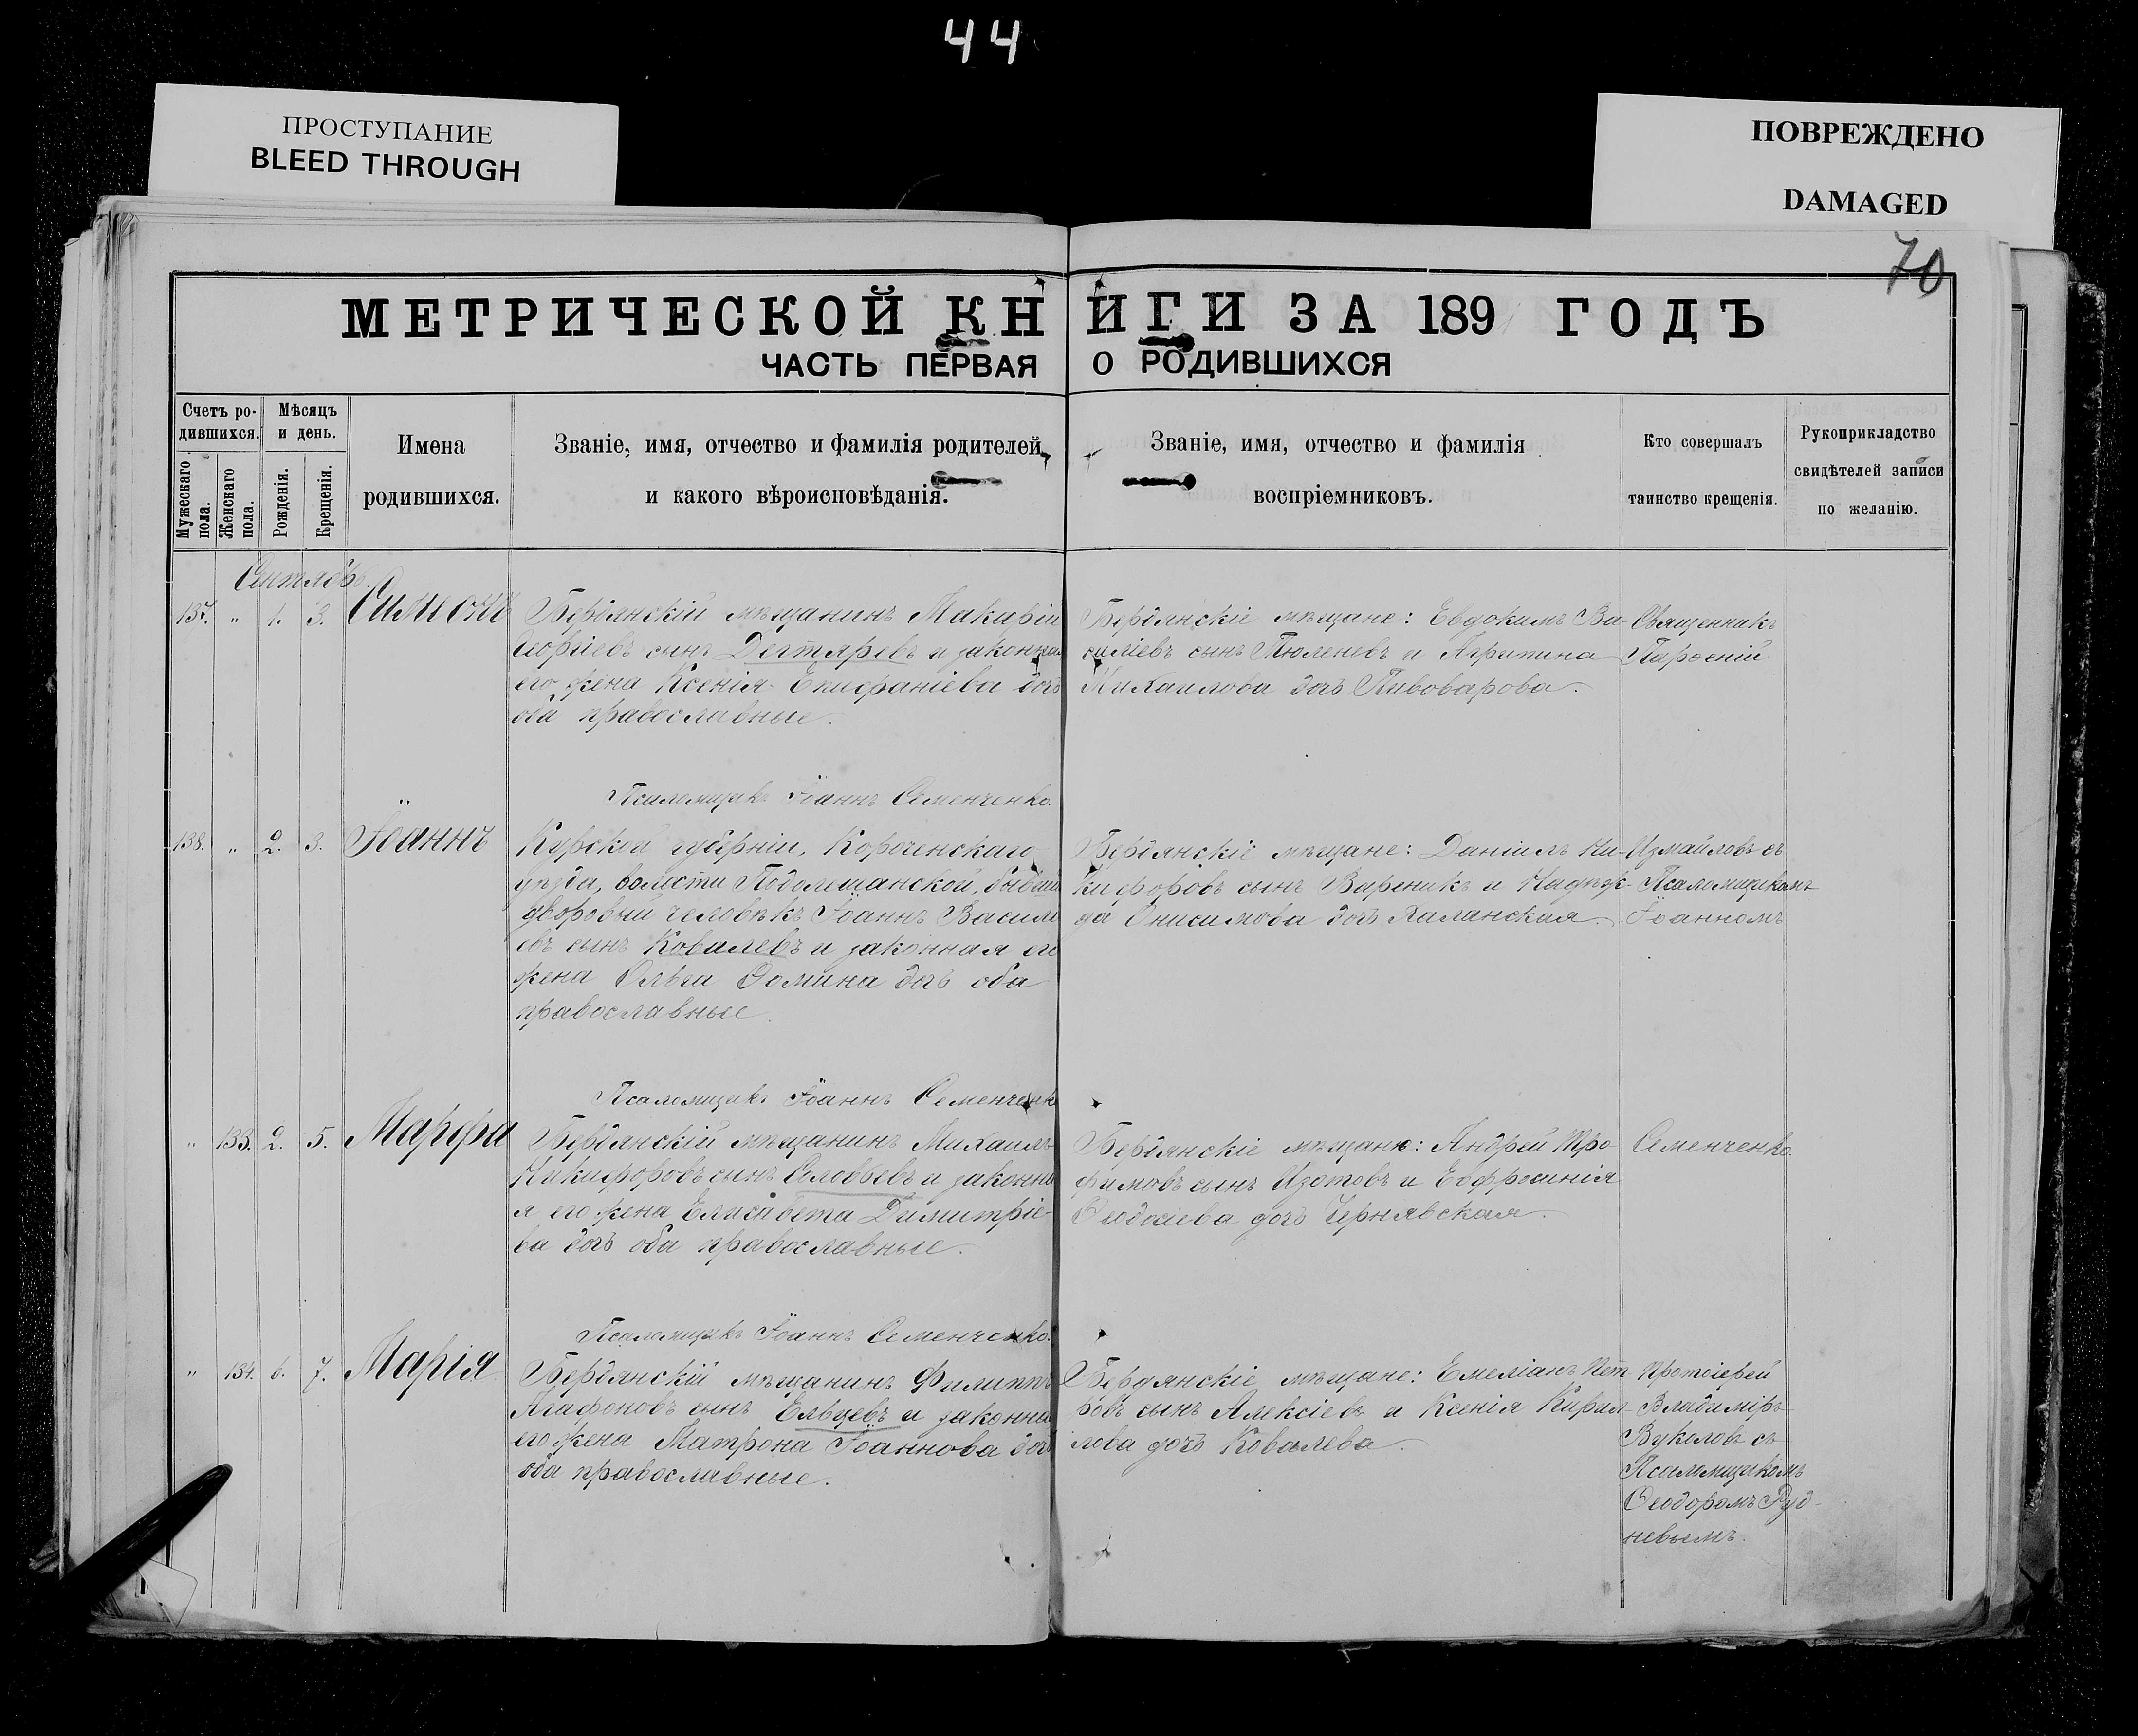 44
ПРОСТУПАНИЕ
BLEED THROUGH
ПОВРЕЖДЕНО
DAMAGED
70
МЕТРИЧЕСКОЙ КНИГИ ЗА 189 ГОДЪ
ЧАСТЬ ПЕРВАЯ О РОДИВШИХСЯ
Счетъ ро-
дившихся.
Мужескаго пола.
Женскаго пола.
Мѣсяцъ
и день.
Рожденія.
Крещенія.
Имена
родившихся.
Званіе, имя, отчество и фамилія родителей,
и какого вѣроисповѣданія.
Званіе, имя, отчество и фамилія
воспріемниковъ.
Кто совершалъ
таинство крещенія.
Рукоприкладство
свидѣтелей записи
по желанію.
Сентябрь
137. " 1. 3. Симеонъ
Бердянскій мѣщанинъ Макарій
сынъ Дегтяревъ и законная
его жена Ксенія Епифаніева дочь
оба православные.
Бердянскіе мѣщане: Евдокимъ Ва-
силіевъ сынъ Тюленевъ и Агрипина
Михаилова дочь Пивоварова.
Священникъ
Парѳеній
Псаломщикъ Іоаннъ Семенченко.
138. " 2. 3. Іоаннъ
Курской губерніи, Короченскаго
уѣзда, волости Подолешанской, бывшій
дворовый человѣкъ Іоаннъ Василі
евъ сынъ Ковалевъ и законная его
жена Ольга Ѳомина дочь оба
православные.
Бердянскіе мѣщане: Даніилъ Ни-
кифоровъ сынъ Вареникъ и Надеж-
да Онисимова дочь
Измайловъ съ
Псаломщикомъ
Іоанномъ
Псаломщикъ Іоаннъ Семенченко
" 133. 2. 5. Марфа
Бердянскій мѣщанинъ Михаилъ
Никифоровъ сынъ Словьевъ и законна
я его жена Елисавета Димитріе-
ва дочь оба православные.
Бердянскіе мѣщане: Андрей Тро-
фимовъ сынъ Изотовъ и Евфросинія
Ѳеодосіева дочь Чернявская.
Семенченко.
Псаломщикъ Іоаннъ Семенченко.
" 134. 6. 7. Марія
Бердянскій мѣщанинъ Филиппъ
Агафоновъ сынъ Ельцевъ и законная
его жена Матрона Іоаннова дочь
оба православные.
Бердянскіе мѣщане: Емеліанъ Пет-
ровъ сынъ Алексіевъ и Ксенія Кирил-
лова дочь Ковалева.
Протоіерей
Владиміръ
Вуколовъ съ
Псаломщикомъ
Ѳеодоромъ Руд-
невымъ.